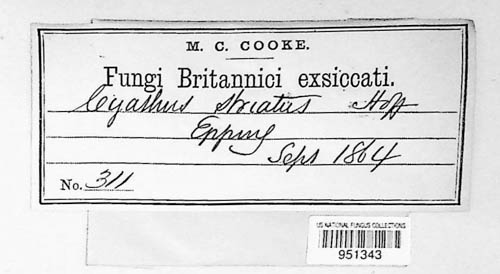 M. C. COOKE.
Fungi Britannici exsiccati.
Cyathus striatus Hoff
Epping
Sept 1864
No. 311
US NATIONAL FUNGUS COLLECTIONS
951343